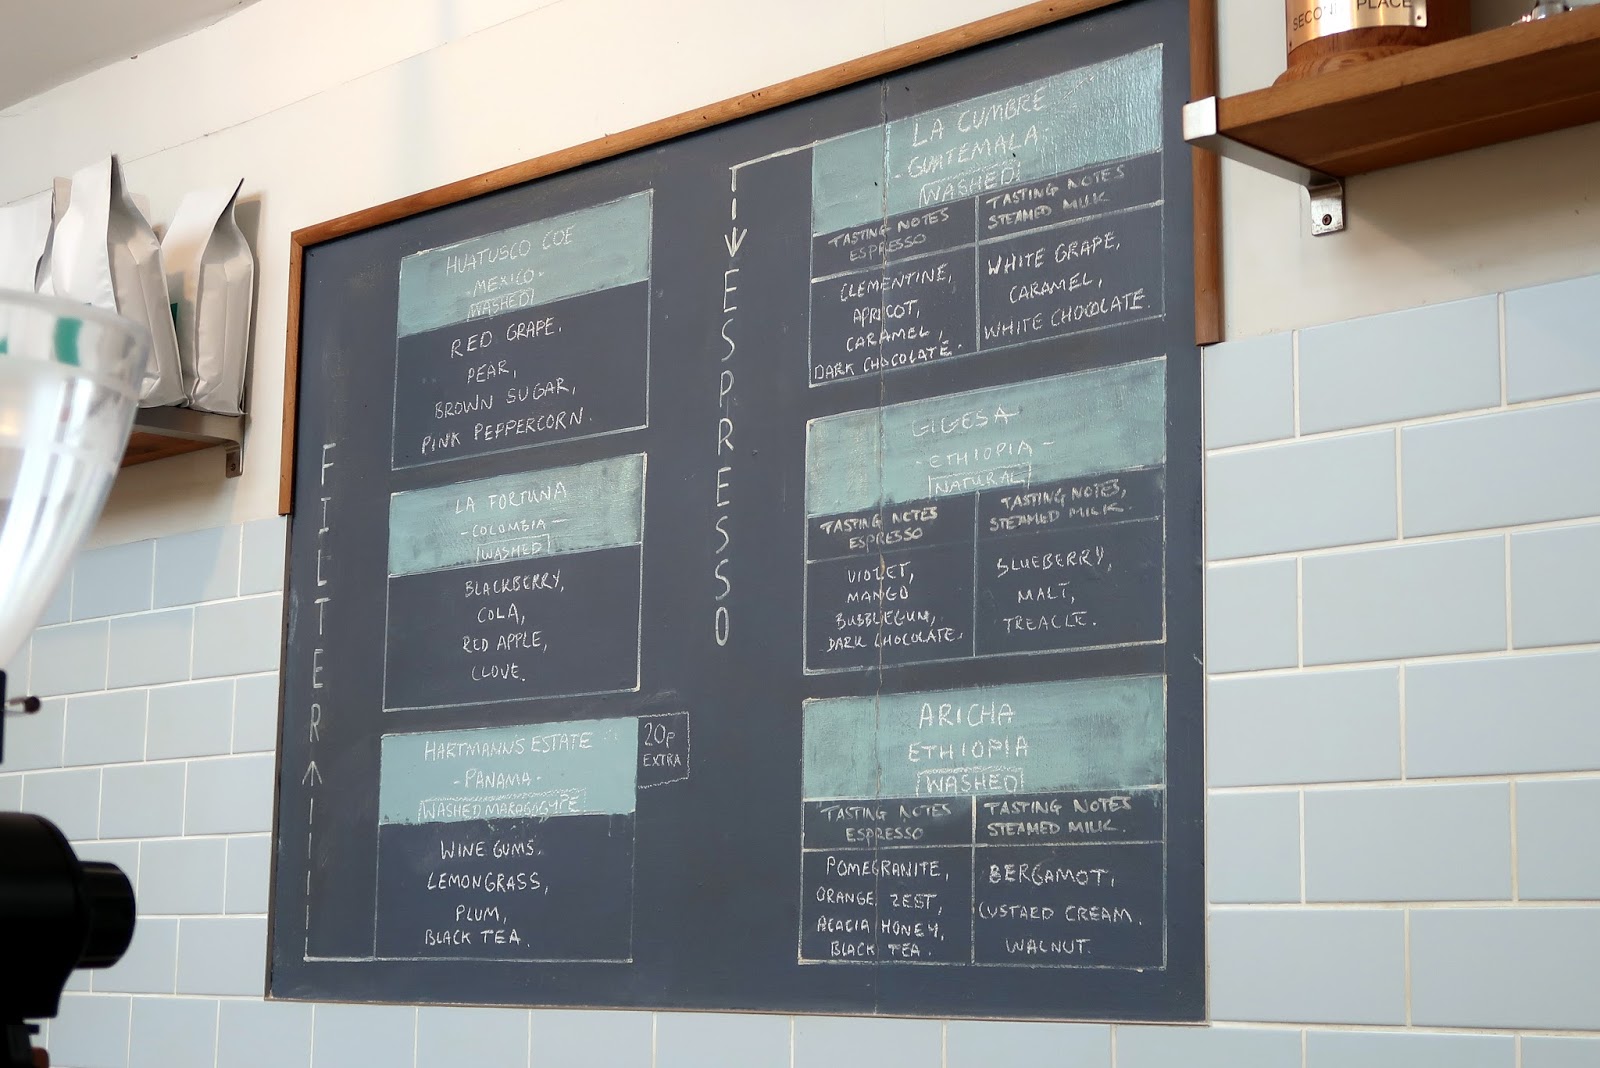 SECOND PLACE
FILTER
HUATUSCO COE
- MEXICO -
WASHED
RED GRAPE,
PEAR,
BROWN SUGAR,
PINK PEPPERCORN.
LA FORTUNA
- COLOMBIA -
WASHED
BLACKBERRY,
COLA,
RED APPLE,
CLOVE.
HARTMANNS ESTATE
- PANAMA -
WASHED MARAGOGYPE
20p
EXTRA
WINE GUMS,
LEMONGRASS,
PLUM,
BLACK TEA.
ESPRESSO
LA CUMBRE
- GUATEMALA -
WASHED
TASTING NOTES
ESPRESSO
CLEMENTINE,
APRICOT,
CARAMEL,
DARK CHOCOLATE.
TASTING NOTES
STEAMED MILK
WHITE GRAPE,
CARAMEL,
WHITE CHOCOLATE.
GIGESA
- ETHIOPIA -
NATURAL
TASTING NOTES
ESPRESSO
VIOLET,
MANGO
BUBBLEGUM,
DARK CHOCOLATE.
TASTING NOTES,
STEAMED MILK.
BLUEBERRY,
MALT,
TREACLE.
ARICHA
ETHIOPIA
WASHED
TASTING NOTES
ESPRESSO
POMEGRANITE,
ORANGE ZEST,
ACACIA HONEY,
BLACK TEA.
TASTING NOTES
STEAMED MILK.
BERGAMOT,
CUSTARD CREAM.
WALNUT.